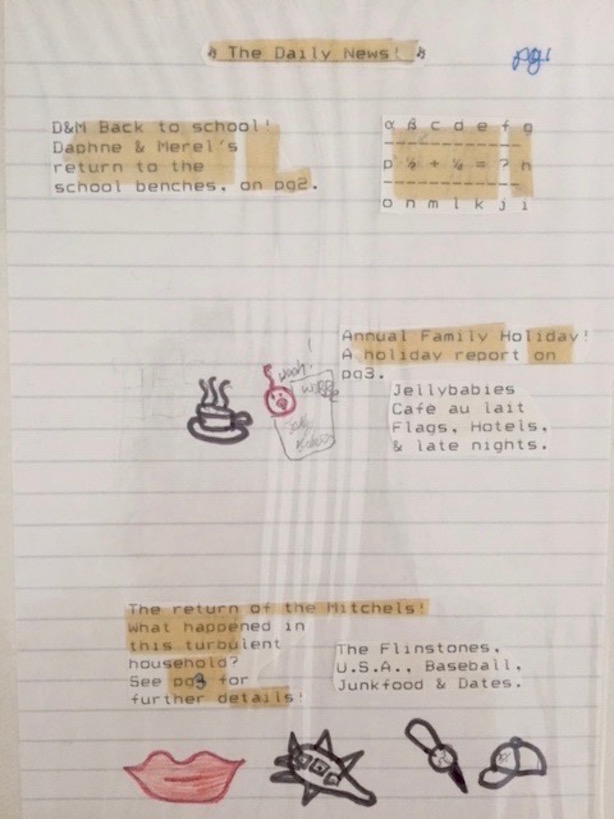 The Daily News!
pg1
D&M Back to school!
Daphne & Merel's
return to the
school benches, on pg2.
α β c d e f g
p ½ + ¼ = ? h
o n m l k j i
Annual Family Holiday!
A holiday report on
pg3.
Jellybabies
Cafe au lait
Flags, Hotels,
& late nights.
The return of the Mitchels!
What happened in
this turbulent
household?
See pg3 for
further details!
The Flinstones,
U.S.A., Baseball,
Junkfood & Dates.